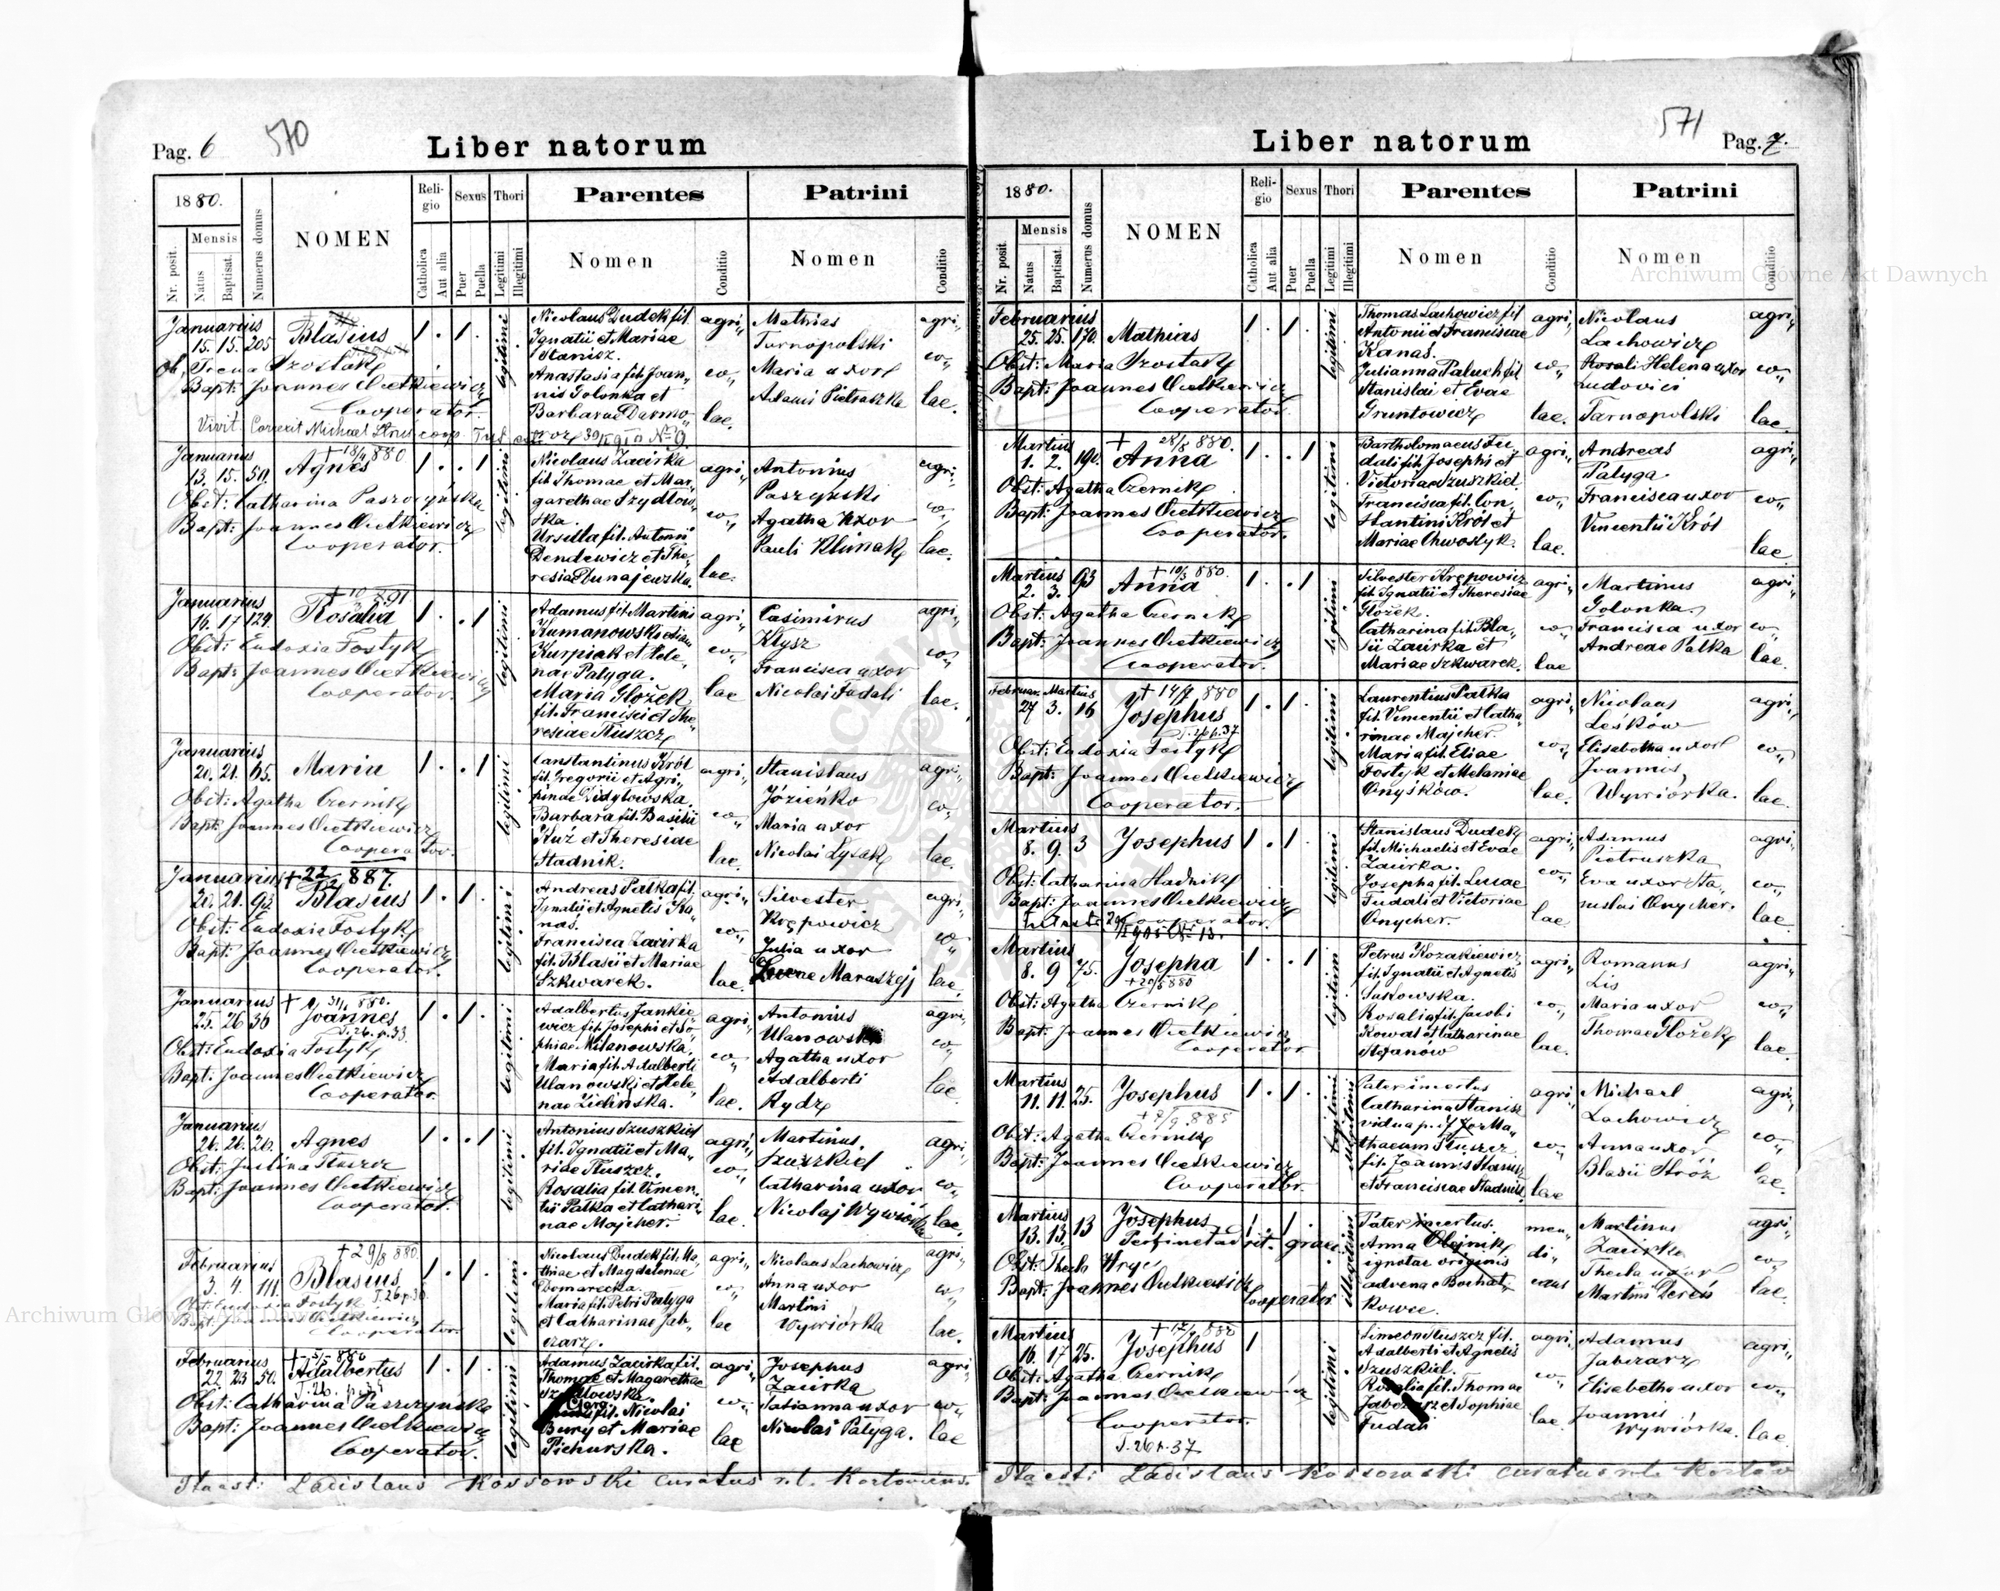 Pag. 6
570
Liber natorum
1880.
Mensis
Nr. posit.
Natus
Baptisat.
Numerus domus
NOMEN
Religio
Catholica
Aut alia
Sexus
Puer
Puella
Thori
Legitimi
Illegitimi
Parentes
Nomen
Conditio
Patrini
Nomen
Conditio
Januarius
15. 15. 205
Blasius
1 . 1 .
legitimi
Obst: Irena Szostak
Bapt: Joannes Cietkiewicz
Cooperator.
Vivit Correxit Michael
Nicolaus Dudek fil.
Ignatii et Mariae
Stanisz.
Anastasia fil. Joan-
nis Golonka et
Barbarae
agri-
co-
lae.
Mathias
Tarnopolski
Maria uxor
Adami Pietraszka
agri-
co-
lae.
Januarius
13. 15. 50.
+ 18/4 880
Agnes
1 . . 1
legitimi
Obst: Catharina Paszczyńska
Bapt: Joannes Cietkiewicz
Cooperator.
Nicolaus Zacirka
fil. Thomae et Mar-
garethae Szydłow-
ska.
Ursula fil. Antonii
Dendewicz et The-
resiae Dunajewska.
agri-
co-
lae.
Antonius
Paszyński
Agatha uxor
Pauli Klimak
agri-
co-
lae.
Januarius
16. 17 124.
Rosalia
1 . . 1
legitimi
Obst: Eudoxia Fostyk
Bapt: Joannes Cietkiewicz
Cooperator.
Adamus fil. Martini
Kumanowski
Kurpiak et Hele-
nae Patyga.
Maria Głożek
fil. Francisci et The-
resiae Tłuszcz
agri-
co-
lae
Casimirus
Kłysz
Francisca uxor
Nicolai Fudali
agri-
co-
lae.
Januarius
20. 21. 65.
Maria
1 . . 1
legitimi
Obst: Agatha Czernik
Bapt: Joannes Cietkiewicz
Cooperator.
Constantinus Król
fil. Gregorii et Agri-
pinae Didyłowska.
Barbara fil. Basilii
Kuź et Theresiae
Stadnik.
agri-
co-
lae.
Stanislaus
Józieńko
Maria uxor
Nicolai Łysak
agri-
co-
lae.
Januarius
21. 92
+ 22/2 887.
Blasius
1 . 1 .
legitimi
Obst: Eudoxia Fostyk
Bapt: Joannes Cietkiewicz
Cooperator.
Andreas Pałka fil.
Ignatii et Agnetis Ka-
nas.
Francisca Zacirka
fil. Blasii et Mariae
Szkwarek.
agri-
co-
lae.
Silvester
Krępowicz
Julia uxor
Maraszej
agri-
co-
lae.
Januarius
25. 26 36
Joannes
T. 26. p. 33
1 . 1 .
legitimi
Obst: Eudoxia Fostyk
Bapt: Joannes Cietkiewicz
Cooperator.
Adalbertus Jankie-
wicz fil. Josephi et So-
phiae Milanowska.
Maria fil. Adalberti
Ulanowski et Hele-
nae Zielińska.
agri-
co-
lae.
Antonius
Ulanowski
Agatha uxor
Adalberti
Rydz
agri-
co-
lae.
Januarius
26. 26. 20.
Agnes
1 . . 1
legitimi
Obst: Justina Tłuszcz
Bapt: Joannes Cietkiewicz
Cooperator.
Antonius Szuszkiel
fil. Ignatii et Ma-
riae Tłuszcz.
Rosalia fil. Vincen-
tii Pałka et Cathari-
nae Majcher.
agri-
co-
lae.
Martinus
Szuszkiel
Catharina uxor
Nicolaj Wywiórka
agri-
co-
lae.
Februarius
3. 4. 111.
+ 29/8 880.
Blasius
1 . 1 .
legitimi
Obst: Eudoxia Fostyk
Cooperator
Nicolaus Dudek fil. Ma-
thiae et Magdalenae
Domarecka.
Maria fil. Petri Patyga
et Catharinae Jab-
czarz.
agri-
co-
lae
Nicolaus Lachowicz
Anna uxor
Martini
Wywiórka
agri-
co-
lae.
Februarius
22 23 50.
Adalbertus
1 . 1 .
legitimi
Obst: Catharina Paszczyńska
Bapt: Joannes Cietkiewicz
Cooperator.
Adamus Zacirka fil.
Thomae et Magarethae
Szydłowska.
fil. Nicolai
Bury et Mariae
Pichurska.
agri-
co-
lae
Josephus
Zacirka
Tatianna uxor
Nicolai Patyga.
agri-
co-
lae
Ita est: Ladislaus Kossowski curatus r.l. Kortoviens.
Liber natorum
571
Pag. 7.
1880.
Mensis
Nr. posit.
Natus
Baptisat.
Numerus domus
NOMEN
Religio
Catholica
Aut alia
Sexus
Puer
Puella
Thori
Legitimi
Illegitimi
Parentes
Nomen
Conditio
Patrini
Nomen
Conditio
Februarius
25. 25. 170.
Mathias
1 . 1 .
legitimi
Obst: Maria Szostak
Bapt: Joannes Cietkiewicz
Cooperator.
Thomas Lachowicz fil.
Antonii et Franciscae
Kanas.
Julianna Paluch fil.
Stanislai et Evae
Gruntowicz
agri-
co-
lae.
Nicolaus
Lachowicz
Helena uxor
Ludovici
Tarnopolski
agri-
co-
lae.
Martius
1. 2. 190.
+ 28/8 880.
Anna
1 . . 1
legitimi
Obst: Agatha Czernik
Bapt: Joannes Cietkiewicz
Cooperator.
Bartholomaeus Fu-
dali fil. Josephi et
Victoriae Szuszkiel.
Francisca fil. Con-
stantini Król et
Mariae Chwostyk.
agri-
co-
lae.
Andreas
Patyga
Francisca uxor
Vincentii Król
agri-
co-
lae
Martius
2. 3. 93
+ 19/3 880.
Anna
1 . . 1
legitimi
Obst: Agatha Czernik
Bapt: Joannes Cietkiewicz
Cooperator.
Silvester Krępowicz
fil. Ignatii et Theresiae
Głożek.
Catharina fil. Bla-
sii Zacirka et
Mariae Szkwarek.
agri-
co-
lae
Martinus
Golonka.
Francisca uxor
Andreae Pałka
agri-
co-
lae.
Februar. Martius
27 3. 16
Josephus
T. 26 p. 37
1 . 1 .
legitimi
Obst: Eudoxia Fostyk
Bapt: Joannes Cietkiewicz
Cooperator.
Laurentius Pałka
fil. Vincentii et Catha-
rinae Majcher.
Maria fil. Eliae
Fostyk et Melaniae
Onyśków.
agri-
co-
lae.
Nicolaus
Leśków
Elisabetha uxor
Joannis,
Wywiórka.
agri-
co-
lae.
Martius
8. 9. 3
Josephus
1 . 1 .
legitimi
Obst: Catharina Stadnik
Bapt: Joannes Cietkiewicz
Cooperator.
Stanislaus Dudek
fil. Michaelis et Evae
Zacirka.
Josepha fil. Lucae
Fudali et Victoriae
Onycher.
agri-
co-
lae
Adamus
Pietruszka
Eva uxor Sta-
nislai Onycher.
agri-
co-
lae.
Martius
8. 9 75.
Josepha
1 . . 1
legitimi
Obst: Agatha Czernik
Bapt: Joannes Cietkiewicz
Cooperator
Petrus Kozakiewicz
fil. Ignatii et Agnetis
Sustowska.
Rosalia fil. Jacobi
Kowal et Catharinae
Stefanów
agri-
co-
lae.
Romanus
Lis
Maria uxor
Thomae Głożek
agri-
co-
lae.
Martius
11. 11. 25.
Josephus
1 . 1 .
Illegitimi
Obst: Agatha Czernik
Bapt: Joannes Cietkiewicz
Cooperator.
Pater incertus
Catharina Stanisz
vidua p. Ma-
thaeum Tłuszcz
fil. Joannis Stanisz
et Franciscae Stadnik
agri-
co-
lae
Michael
Lachowicz
Anna uxor
Blasii Stróż
agri-
co-
lae.
Martius
13. 13. 13
Josephus
Pertinet ad rit. graec.
illegitimi
Obst: Thecla Hryc
Bapt: Joannes Cietkiewicz
Cooperator
Pater incertus.
Anna Olejnik
ignotae originis
advena
men-
di-
cans
Martinus
Zacirka
Thecla uxor
Martini Dereń
agri-
co-
lae.
Martius
16. 17 25.
Josephus
1
legitimi
Obst: Agatha Czernik
Bapt: Joannes Cietkiewicz
Cooperator.
T. 26 p. 37
Simeon Tłuszcz fil.
Adalberti et Agnetis
Szuszkiel.
Rosalia fil. Thomae
Jabczarz et Sophiae
Fudali
agri-
co-
lae
Adamus
Jabczarz
Elisabetha uxor
Joannis
Wywiórka.
agri-
co-
lae.
Ita est: Ladislaus Kossowski curatus r.l. Kortów
Archiwum Główne Akt Dawnych